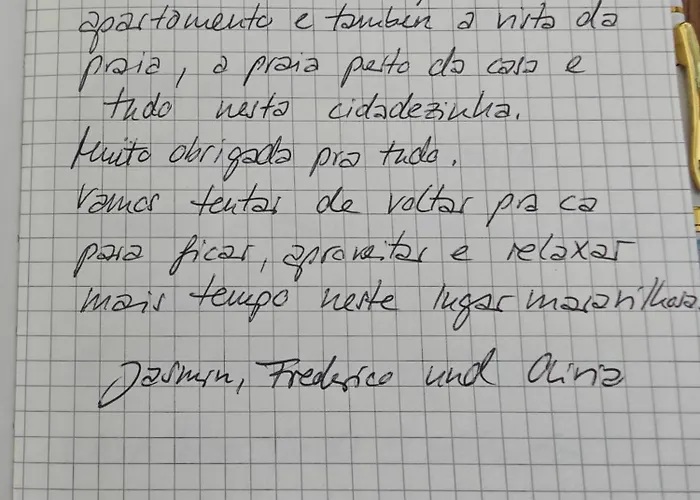 apartamento e tambén a vista da
praia, a praia perto da casa e
tudo nesta cidadezinha.
Muito obrigada pra tudo.
Vamos tentar de voltar pra ca
para ficar, aproveitar e relaxar
mais tempo neste lugar maravilhoso.
Jasmin, Frederico und